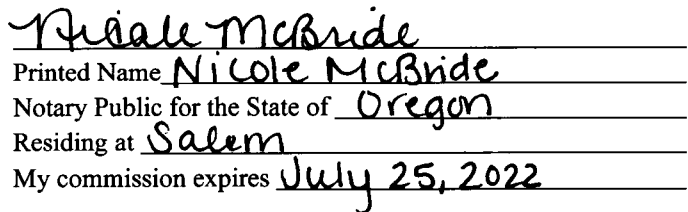 Nicole McBride
Printed Name Nicole McBride
Notary Public for the State of Oregon
Residing at Salem
My commission expires July 25, 2022